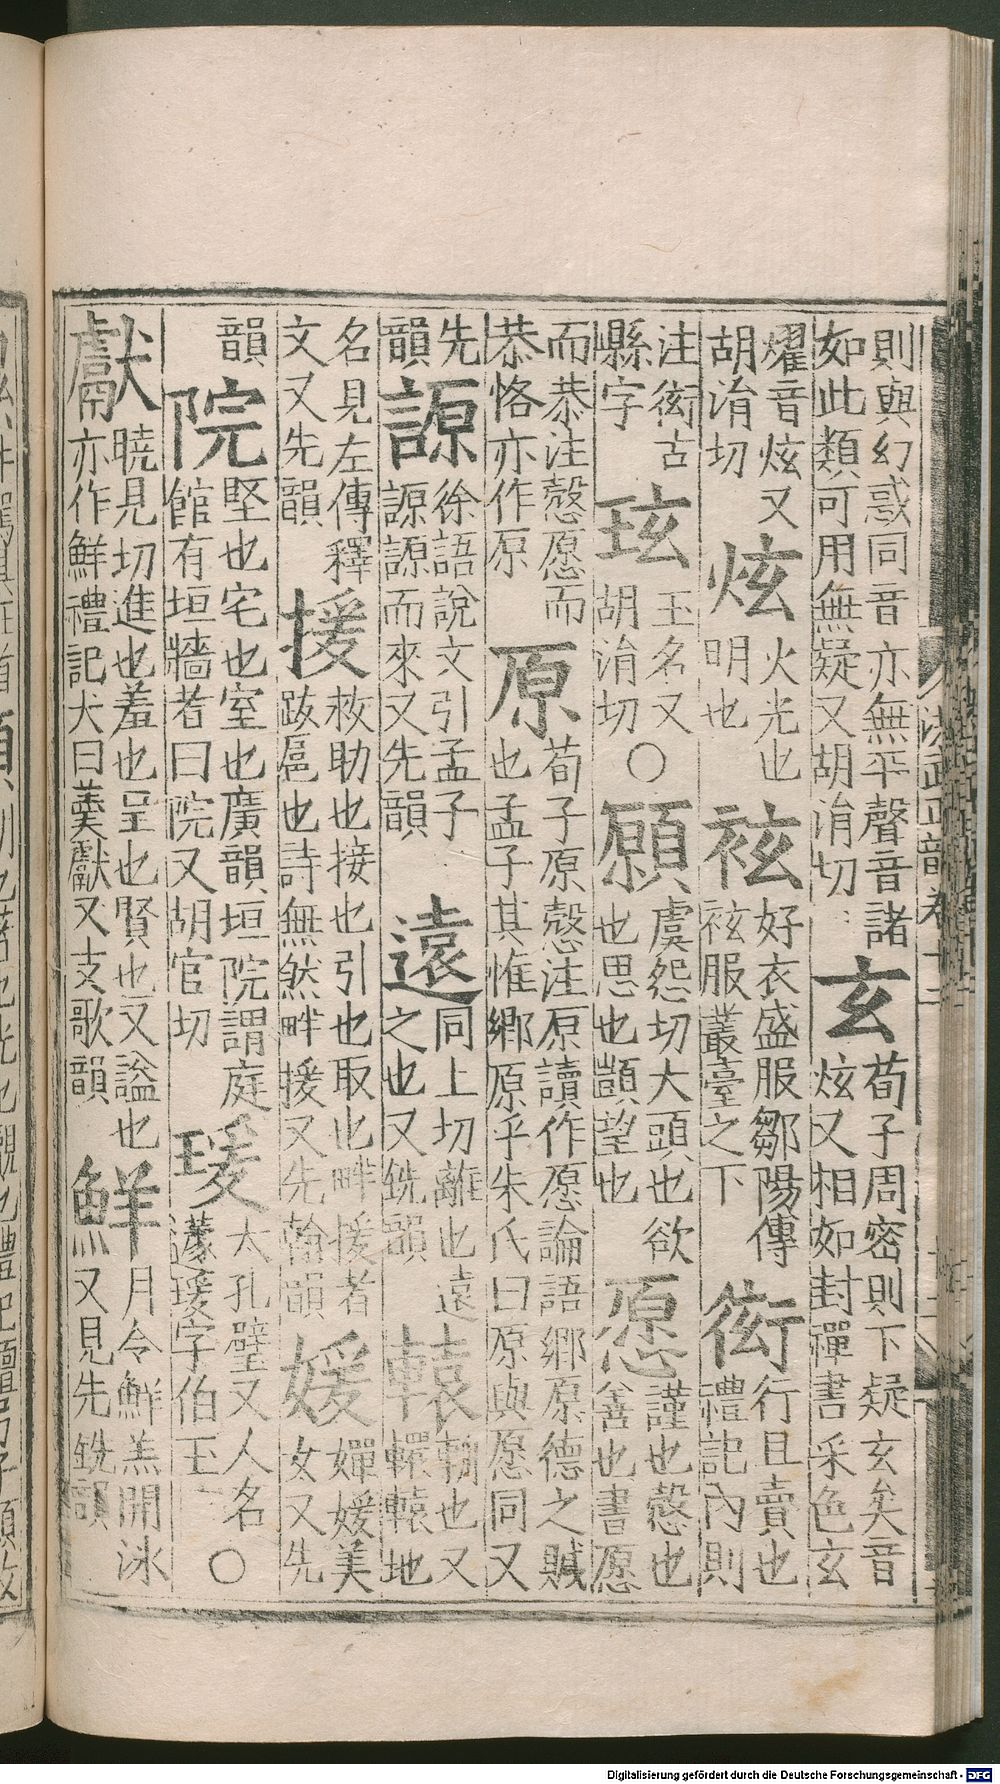 則與幻惑同音亦無平聲音諸
如此類可用無疑又胡涓切
玄
荀子周密則下疑玄矣音
炫又相如封禪書采色玄
燿音炫又
胡涓切
炫
火光也
明也
袨
好衣盛服鄒陽傳
袨服叢臺之下
衒
行且賣也
禮記內則
注衒古
縣字
玹
玉名又
胡涓切
○
願
虞怨切大頭也欲
也思也顗望也
愿
謹也慤也
善也書愿
而恭注慤愿而
恭恪亦作原
原
荀子原慤注原讀作愿論語鄉原德之賊
也孟子其惟鄉原乎朱氏曰原與愿同又
先
韻
謜
徐語說文引孟子
謜謜而來又先韻
遠
同上切離也遠
之也又銑韻
轅
輈也又
轘轅地
名見左傳釋
文又先韻
援
救助也接也引也取也畔援者
跋扈也詩無然畔援又先翰韻
媛
嬋媛美
女又先
韻
院
堅也宅也室也廣韻垣院謂庭
館有垣牆者曰院又胡官切
瑗
大孔璧又人名
蘧瑗字伯玉
○
獻
曉見切進也羞也呈也賢也又諡也
亦作鮮禮記犬曰羹獻又支歌韻
鮮
月令鮮羔開冰
又見先銑韻
洪武正韻卷十二
Digitalisierung gefördert durch die Deutsche Forschungsgemeinschaft - DFG